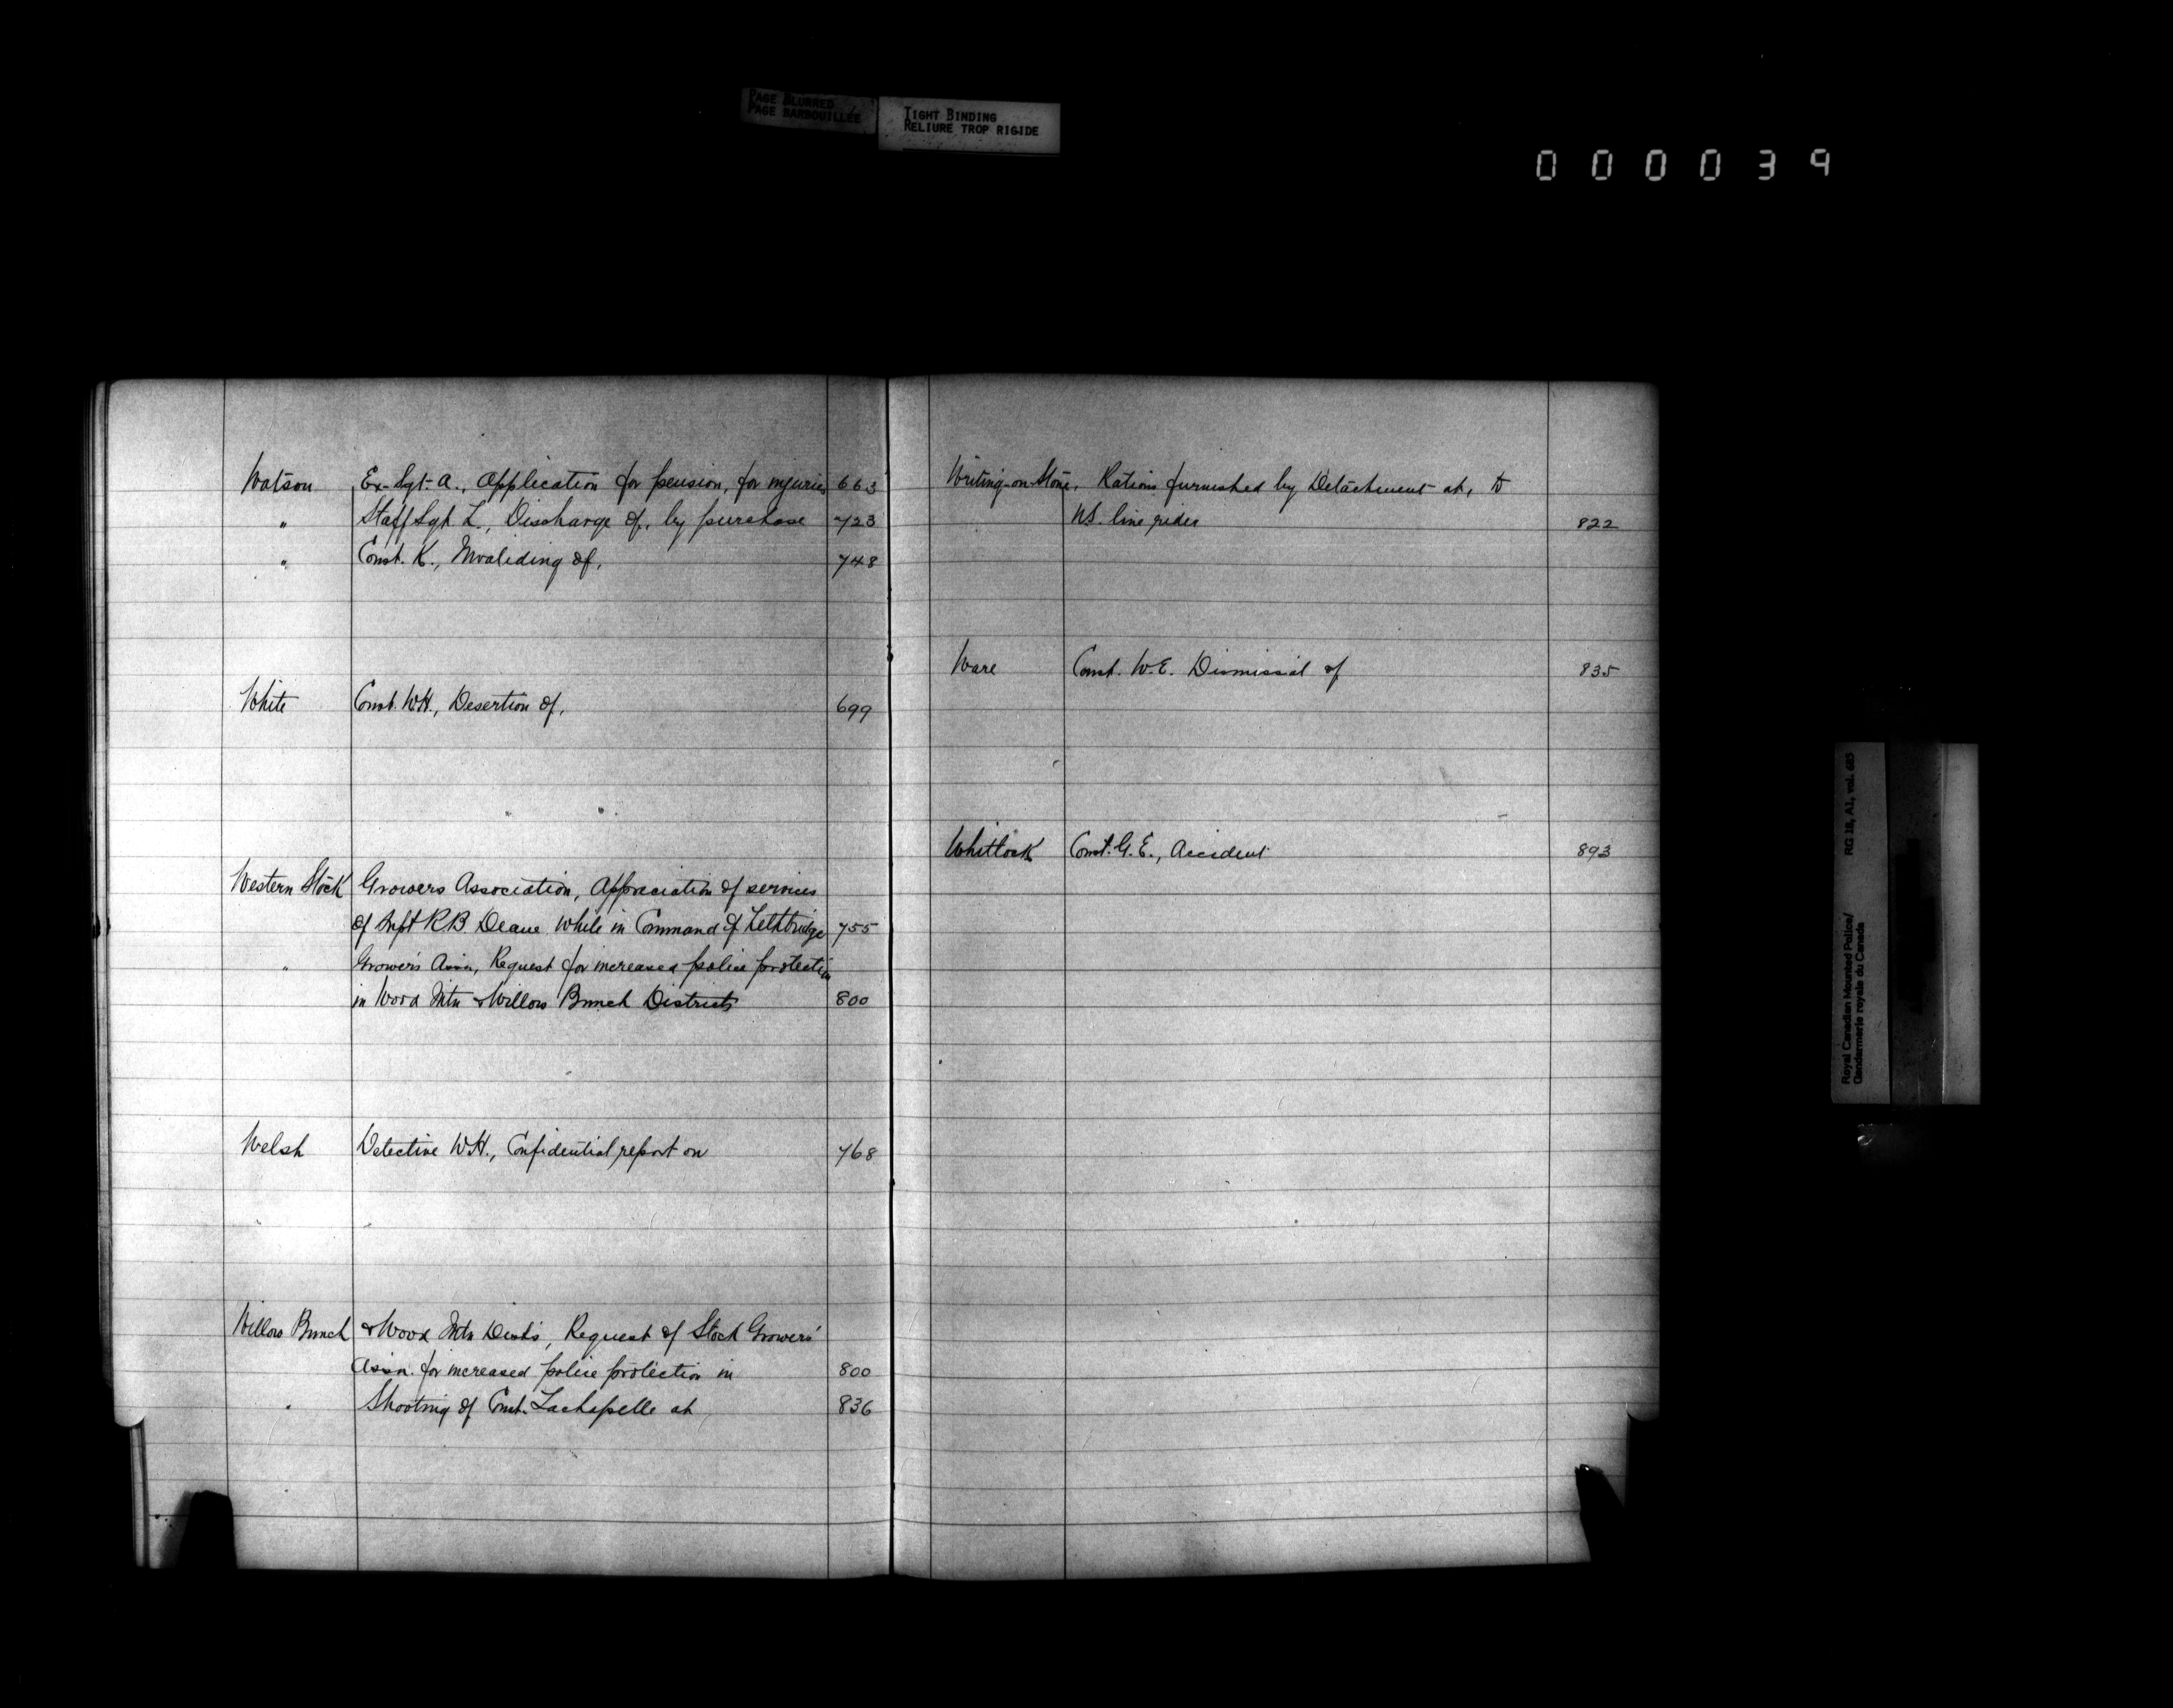 PAGE BLURRED
PAGE BARBOUILLÉE
TIGHT BINDING
RELIURE TROP RIGIDE
000039
Watson Ex-Sgt. A., Application for pension, for injuries 663
" Staff Sgt L., Discharge of, by purchase 723
" Const. K., Invaliding of, 748
White Const. W.H., Desertion of, 699
Western Stock Growers Association, Appreciation of services
of Supt R.B. Deane while in Command of Lethbridge 755
" Growers Assn, Request for increased police protection
in Wood Mtn & Willow Bunch Districts 800
Welsh Detective W.H., Confidential report on 768
Willow Bunch & Wood Mtn Dists, Request of Stock Growers'
Assn. for increased police protection in 800
" Shooting of Const. Lachapelle at 836
Writing-on-Stone, Rations furnished by Detachment at, to
U.S. line rider 822
Ware Const. W.E. Dismissal of 835
Whitlock Const. G.E., Accident 893
Royal Canadian Mounted Police/
Gendarmerie royale du Canada
RG 18, A1, vol. 685